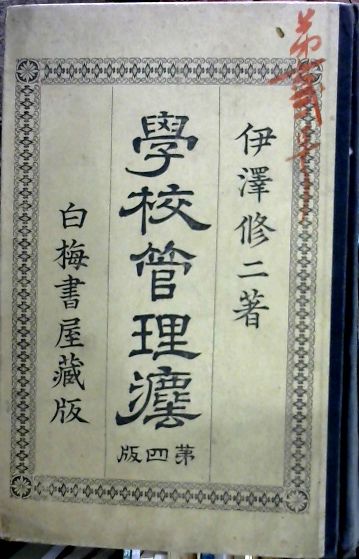 伊澤修二著
學校管理灋
第四版
白梅書屋藏版